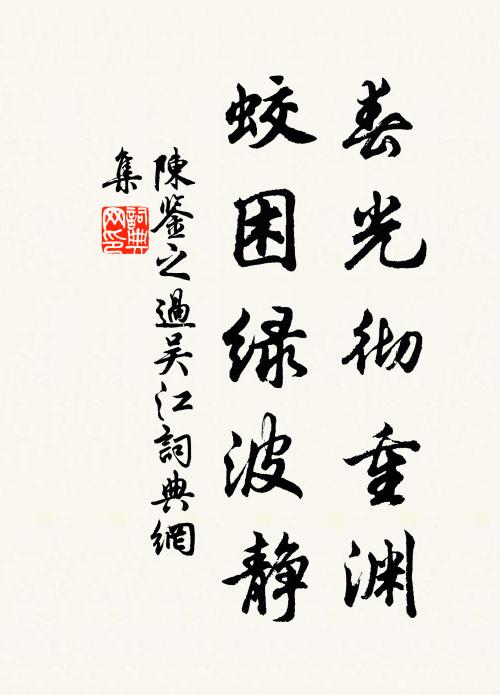 春光彻重渊
蛟困绿波静
陳鉴之過吴江詞典網
集
詞典网印